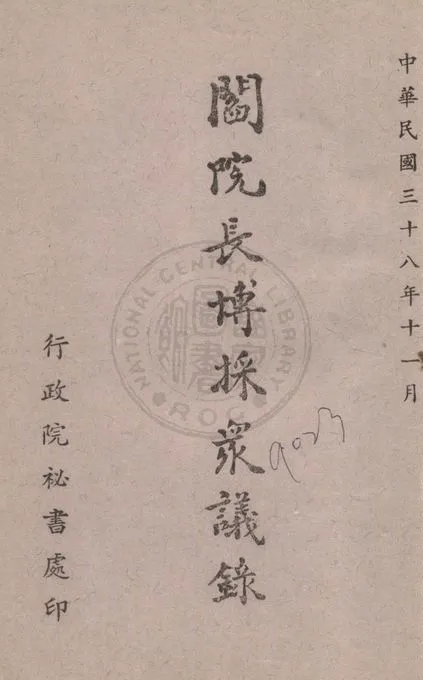 中華民國三十八年十一月
閻院長博採眾議錄
行政院祕書處印
NATIONAL CENTRAL LIBRARY
ROC